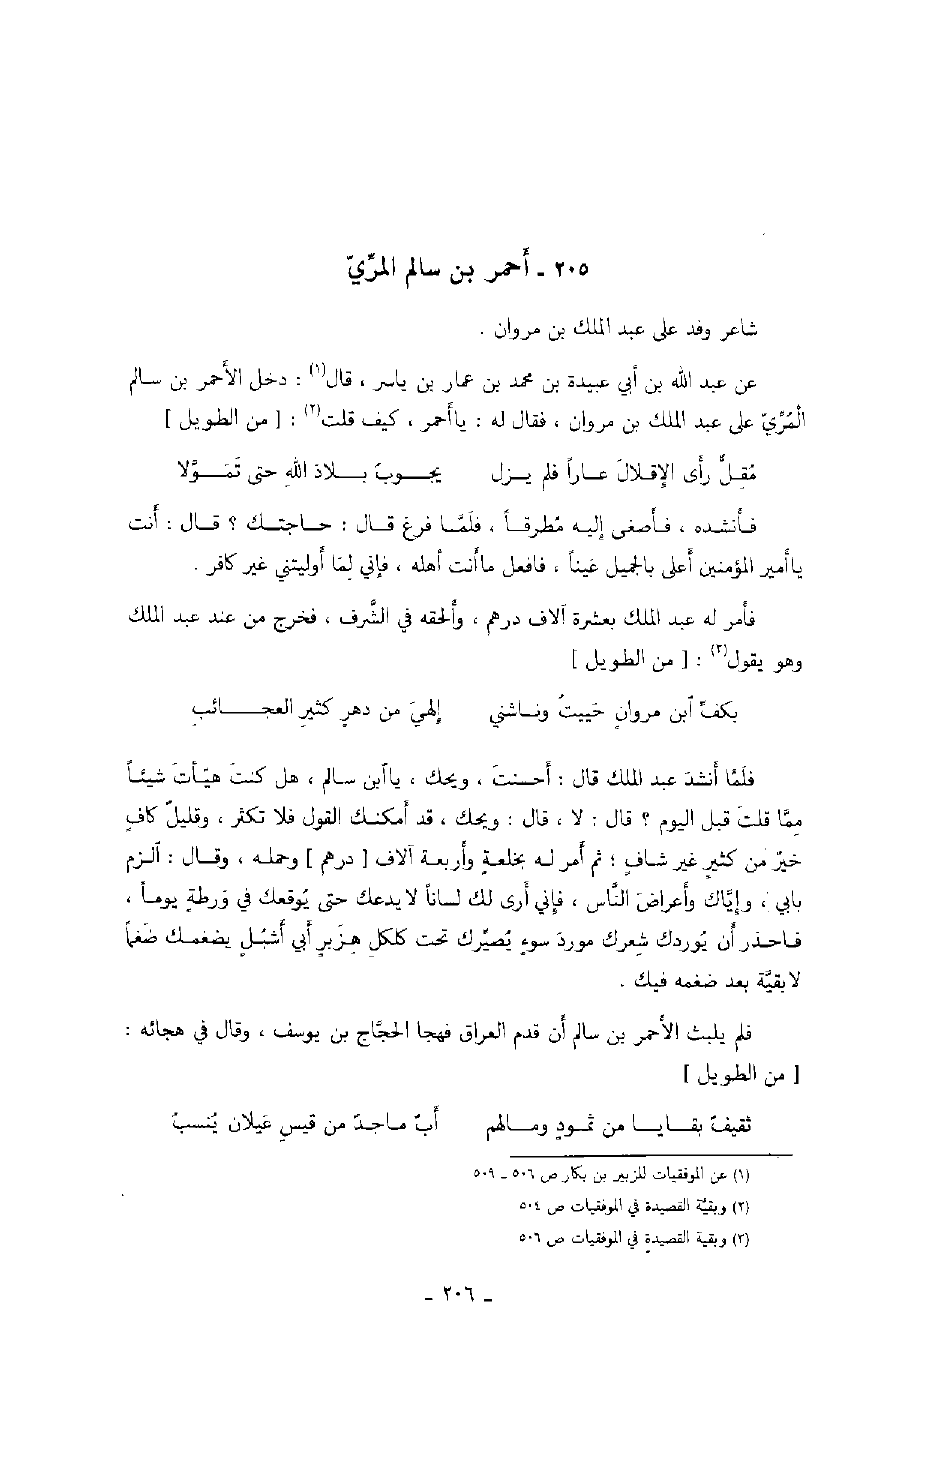 ٢٠٥ - أَحمر بن سالم المرِّيّ
شاعر وفد على عبد الملك بن مروان .
عن عبد الله بن أبي عبيدة بن محمد بن عمار بن ياسر ، قال(١) : دخل الأَحمر بن سالم
الْمُرِّيّ على عبد الملك بن مروان ، فقال له : ياأحمر ، كيف قلت(٢) : [ من الطويل ]
مُقِلٌّ رأى الإقلالَ عاراً فلم يزل يجوبُ بلادَ اللهِ حتى تَمَوَّلا
فأنشده ، فأصغى إليه مُطرقاً ، فلَمَّا فرغ قال : حاجتك ؟ قال : أَنت
ياأمير المؤمنين أعلى بالجميل عَيناً ، فافعل ماأَنت أهله ، فإني لِمَا أَوليتني غير كافر .
فأَمر له عبد الملك بعشرة آلاف درهم ، وأَلحقه في الشَّرف ، فخرج من عند عبد الملك
وهو يقول(٣) : [ من الطويل ]
بكفِّ آبن مروانٍ حَييتُ وناشني إلهيَ من دهرٍ كثيرِ العجائبِ
فلَمَّا أَنشدَ عبد الملك قال : أَحسنتَ ، ويحك ، ياآبن سالم ، هل كنتَ هيّأتَ شيئاً
مِمَّا قلتَ قبل اليوم ؟ قال : لا ، قال : ويحك ، قد أَمكنك القول فلا تكثر ، وقليلٌ كافٍ
خيرٌ من كثيرٍ غير شافٍ ؛ ثم أمر له بخلعةٍ وأربعة آلاف [ درهم ] وحمله ، وقال : آلزم
بابي ، وإيَّاك وأَعراضَ النَّاس ، فإنِّي أَرى لك لساناً لايدعك حتى يُوقعك في وَرطةٍ يوماً ،
فاحذر أَن يُوردك شِعرك موردَ سوءٍ يُصَيِّرك تحت كَلكلِ هِزَبرٍ أَبي أَشبُلٍ يضغمك ضَغماً
لابقيَّة بعد ضغمه فيك .
فلم يلبث الأَحمر بن سالم أَن قدم العراق فهجا الحجَّاج بن يوسف ، وقال في هجائه :
[ من الطويل ]
ثقيفٌ بقايا من ثمودٍ ومالهم أَبٌ ماجدٌ من قيسِ عَيلان يُنسبُ
(١) عن الموفقيات للزبير بن بكار ص ٥٠٦ - ٥٠٩
(٢) وبقيّة القصيدة في الموفقيات ص ٥٠٤
(٣) وبقية القصيدة في الموفقيات ص ٥٠٦
- ٢٠٦ -